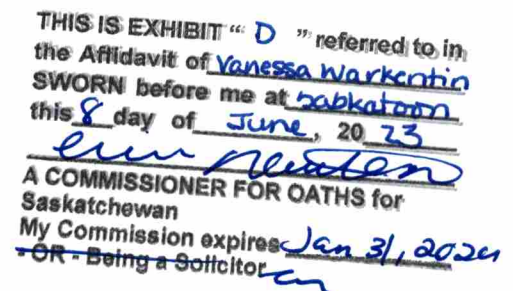 THIS IS EXHIBIT “ D ” referred to in
the Affidavit of Vanessa Warkentin
SWORN before me at Saskatoon
this 8 day of June, 20 23
A COMMISSIONER FOR OATHS for
Saskatchewan
My Commission expires Jan 31, 2024
- OR - Being a Solicitor